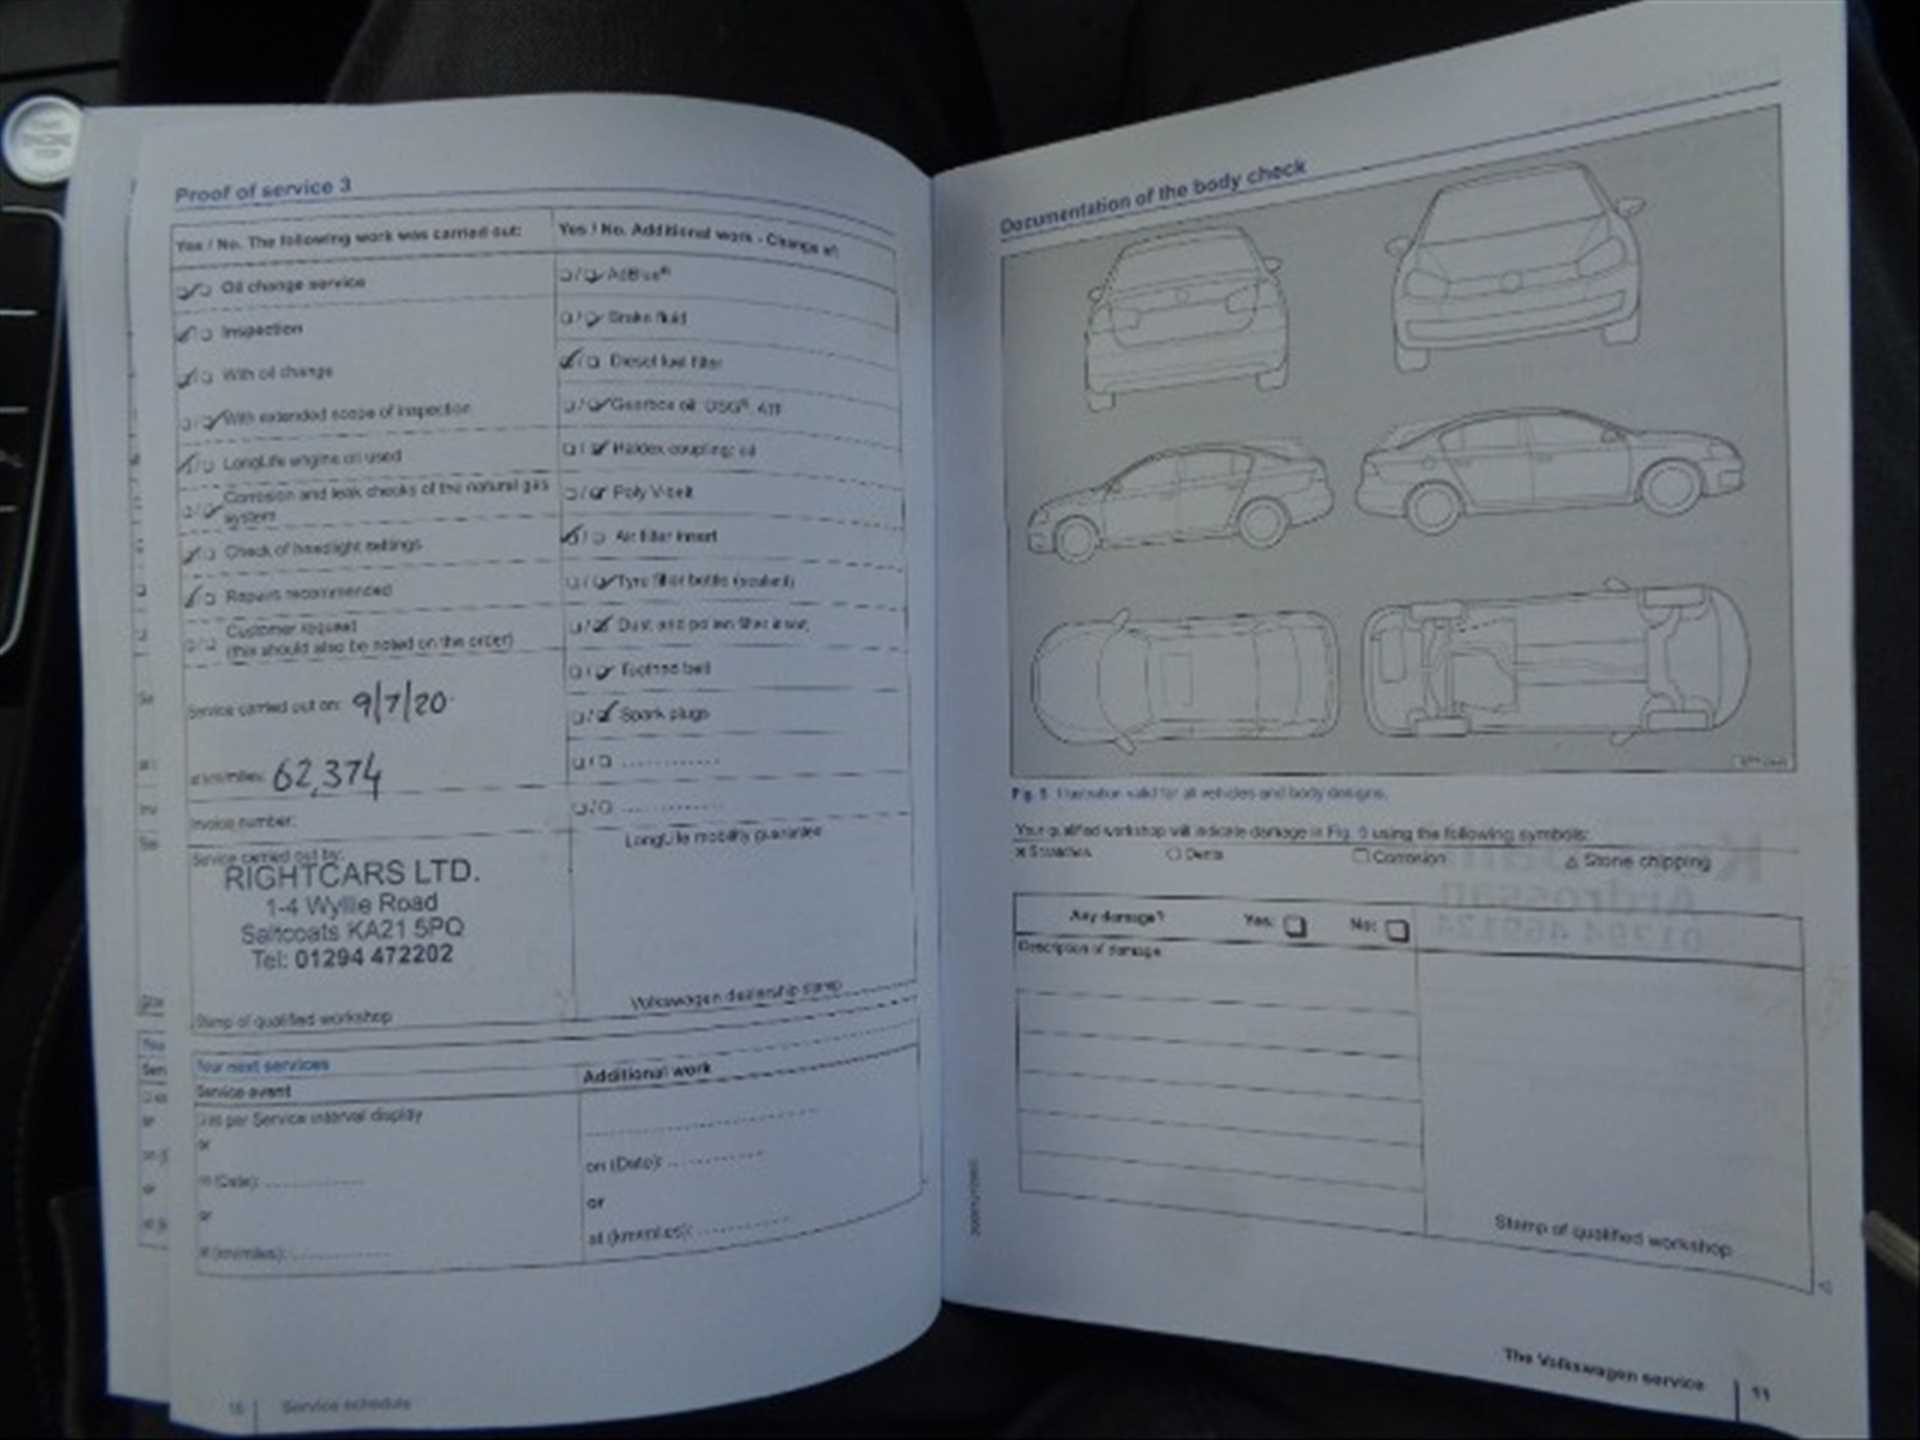 Proof of service 3
Yes / No. The following work was carried out:
Oil change service
Inspection
With oil change
With extended scope of inspection
LongLife engine oil used
Corrosion and leak checks of the natural gas
system
Check of headlight settings
Repairs recommended
Customer request
(this should also be noted on the order)
Service carried out on: 9/7/20
at km/miles: 62,374
Invoice number:
Service carried out by:
RIGHTCARS LTD.
1-4 Wyllie Road
Saltcoats KA21 5PQ
Tel: 01294 472202
Stamp of qualified workshop
Yes / No. Additional work - Change of:
AdBlue®
Brake fluid
Diesel fuel filter
Gearbox oil: DSG®, 4
Haldex coupling: oil
Poly V-belt
Air filter insert
Tyre filler bottle (sealant)
Dust and pollen filter insert
Toothed belt
Spark plugs
LongLife mobility guarantee
Volkswagen dealership stamp
Your next services
Service event
as per Service interval display
or
on (Date):
or
at (km/miles):
Additional work
on (Date):
or
at (km/miles):
16 Service schedule
Documentation of the body check
Fig. Illustration valid for all vehicles and body designs.
Your qualified workshop will indicate damage in Fig. using the following symbols:
Scratches Dents Corrosion Stone chipping
Any damage? Yes: No:
Description of damage
Stamp of qualified workshop
The Volkswagen service 11